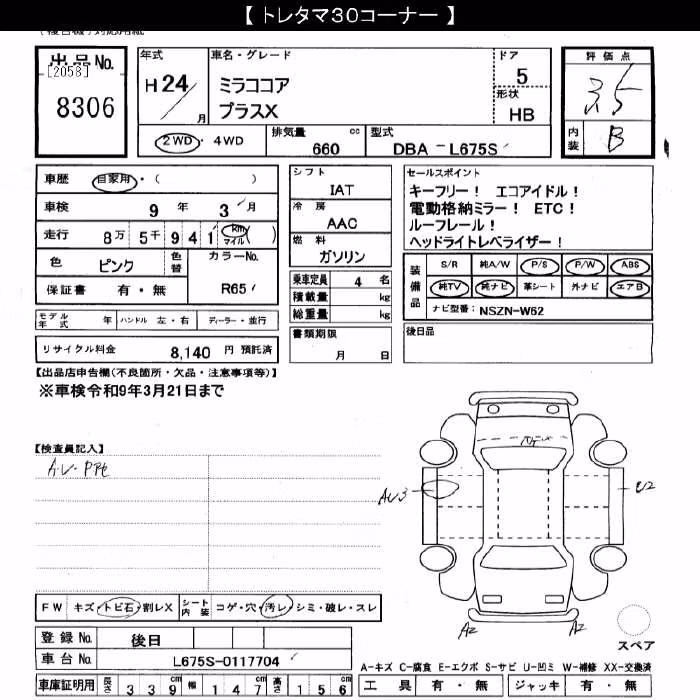 【 トレタマ30コーナー 】
出品No.
[2058]
8306
年式
H 24 / 月
車名・グレード
ミラココア
プラスX
ドア
5
形状
HB
2WD・4WD
排気量 660 cc
型式 DBA － L675S
評価点
3.5
内装 B
車歴 自家用・( )
車検 9 年 3 月
走行 8万 5千 9 4 1 km マイル ( )
色 ピンク 色替
カラーNo.
R65
保証書 有・無
モデル年式 年 ハンドル 左・右 ディーラー・並行
リサイクル料金 8,140 円 預託済
シフト
IAT
冷房
AAC
燃料
ガソリン
乗車定員 4 名
積載量 kg
総重量 kg
書類期限
月 日
セールスポイント
キーフリー！ エコアイドル！
電動格納ミラー！ ETC！
ルーフレール！
ヘッドライトレベライザー！
装備品
S/R 純A/W P/S P/W ABS
純TV 純ナビ 革シート 外ナビ エアB
ナビ型番: NSZN-W62
後日品
【出品店申告欄(不良箇所・欠品・注意事項等)】
※車検令和9年3月21日まで
【検査員記入】
FW キズ・トビ石・割レX シート内装 コゲ・穴・汚レ・シミ・破レ・スレ
登録No. 後日
車台No. L675S-0117704
車庫証明用 長さ 3 3 9 cm 幅 1 4 7 cm 高さ 1 5 6 cm
AU3
U2
A2
A2
スペア
A-キズ C-腐食 E-エクボ S-サビ U-凹ミ W-補修 XX-交換済
工具 有・無 ジャッキ 有・無